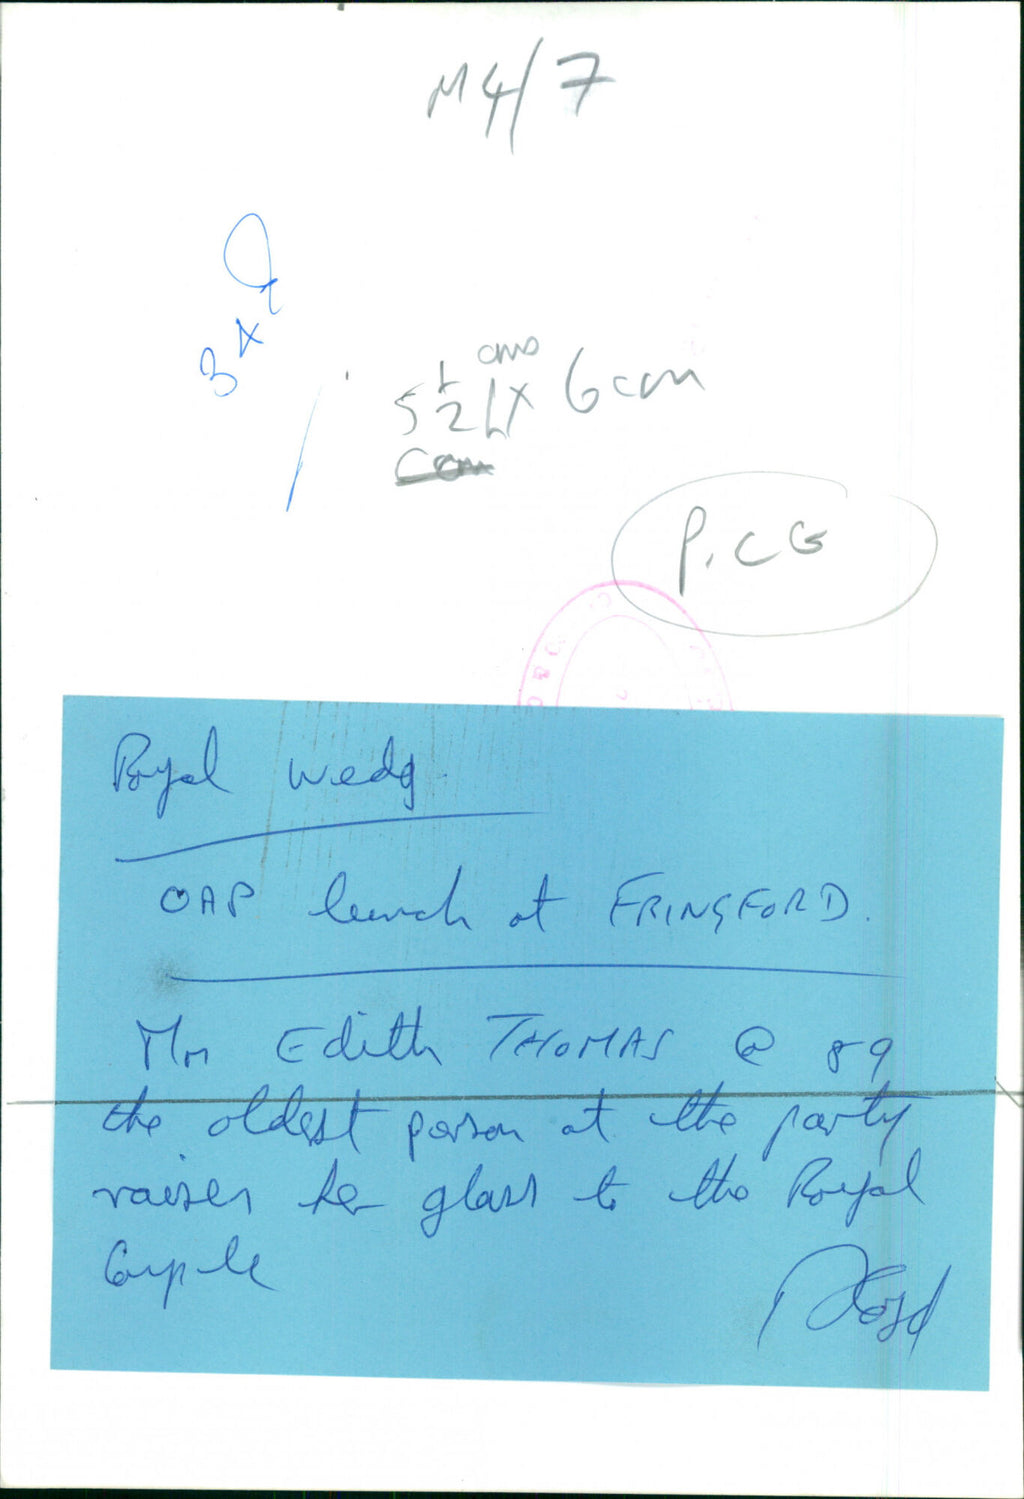 M4/7
3 x
5 1/2 cms x 6 cm
P.CG
Royal Wedg.
OAP lunch at FRINGFORD.
Mrs Edith THOMAS @ 89
the oldest person at the party
raises her glass to the Royal
Couple